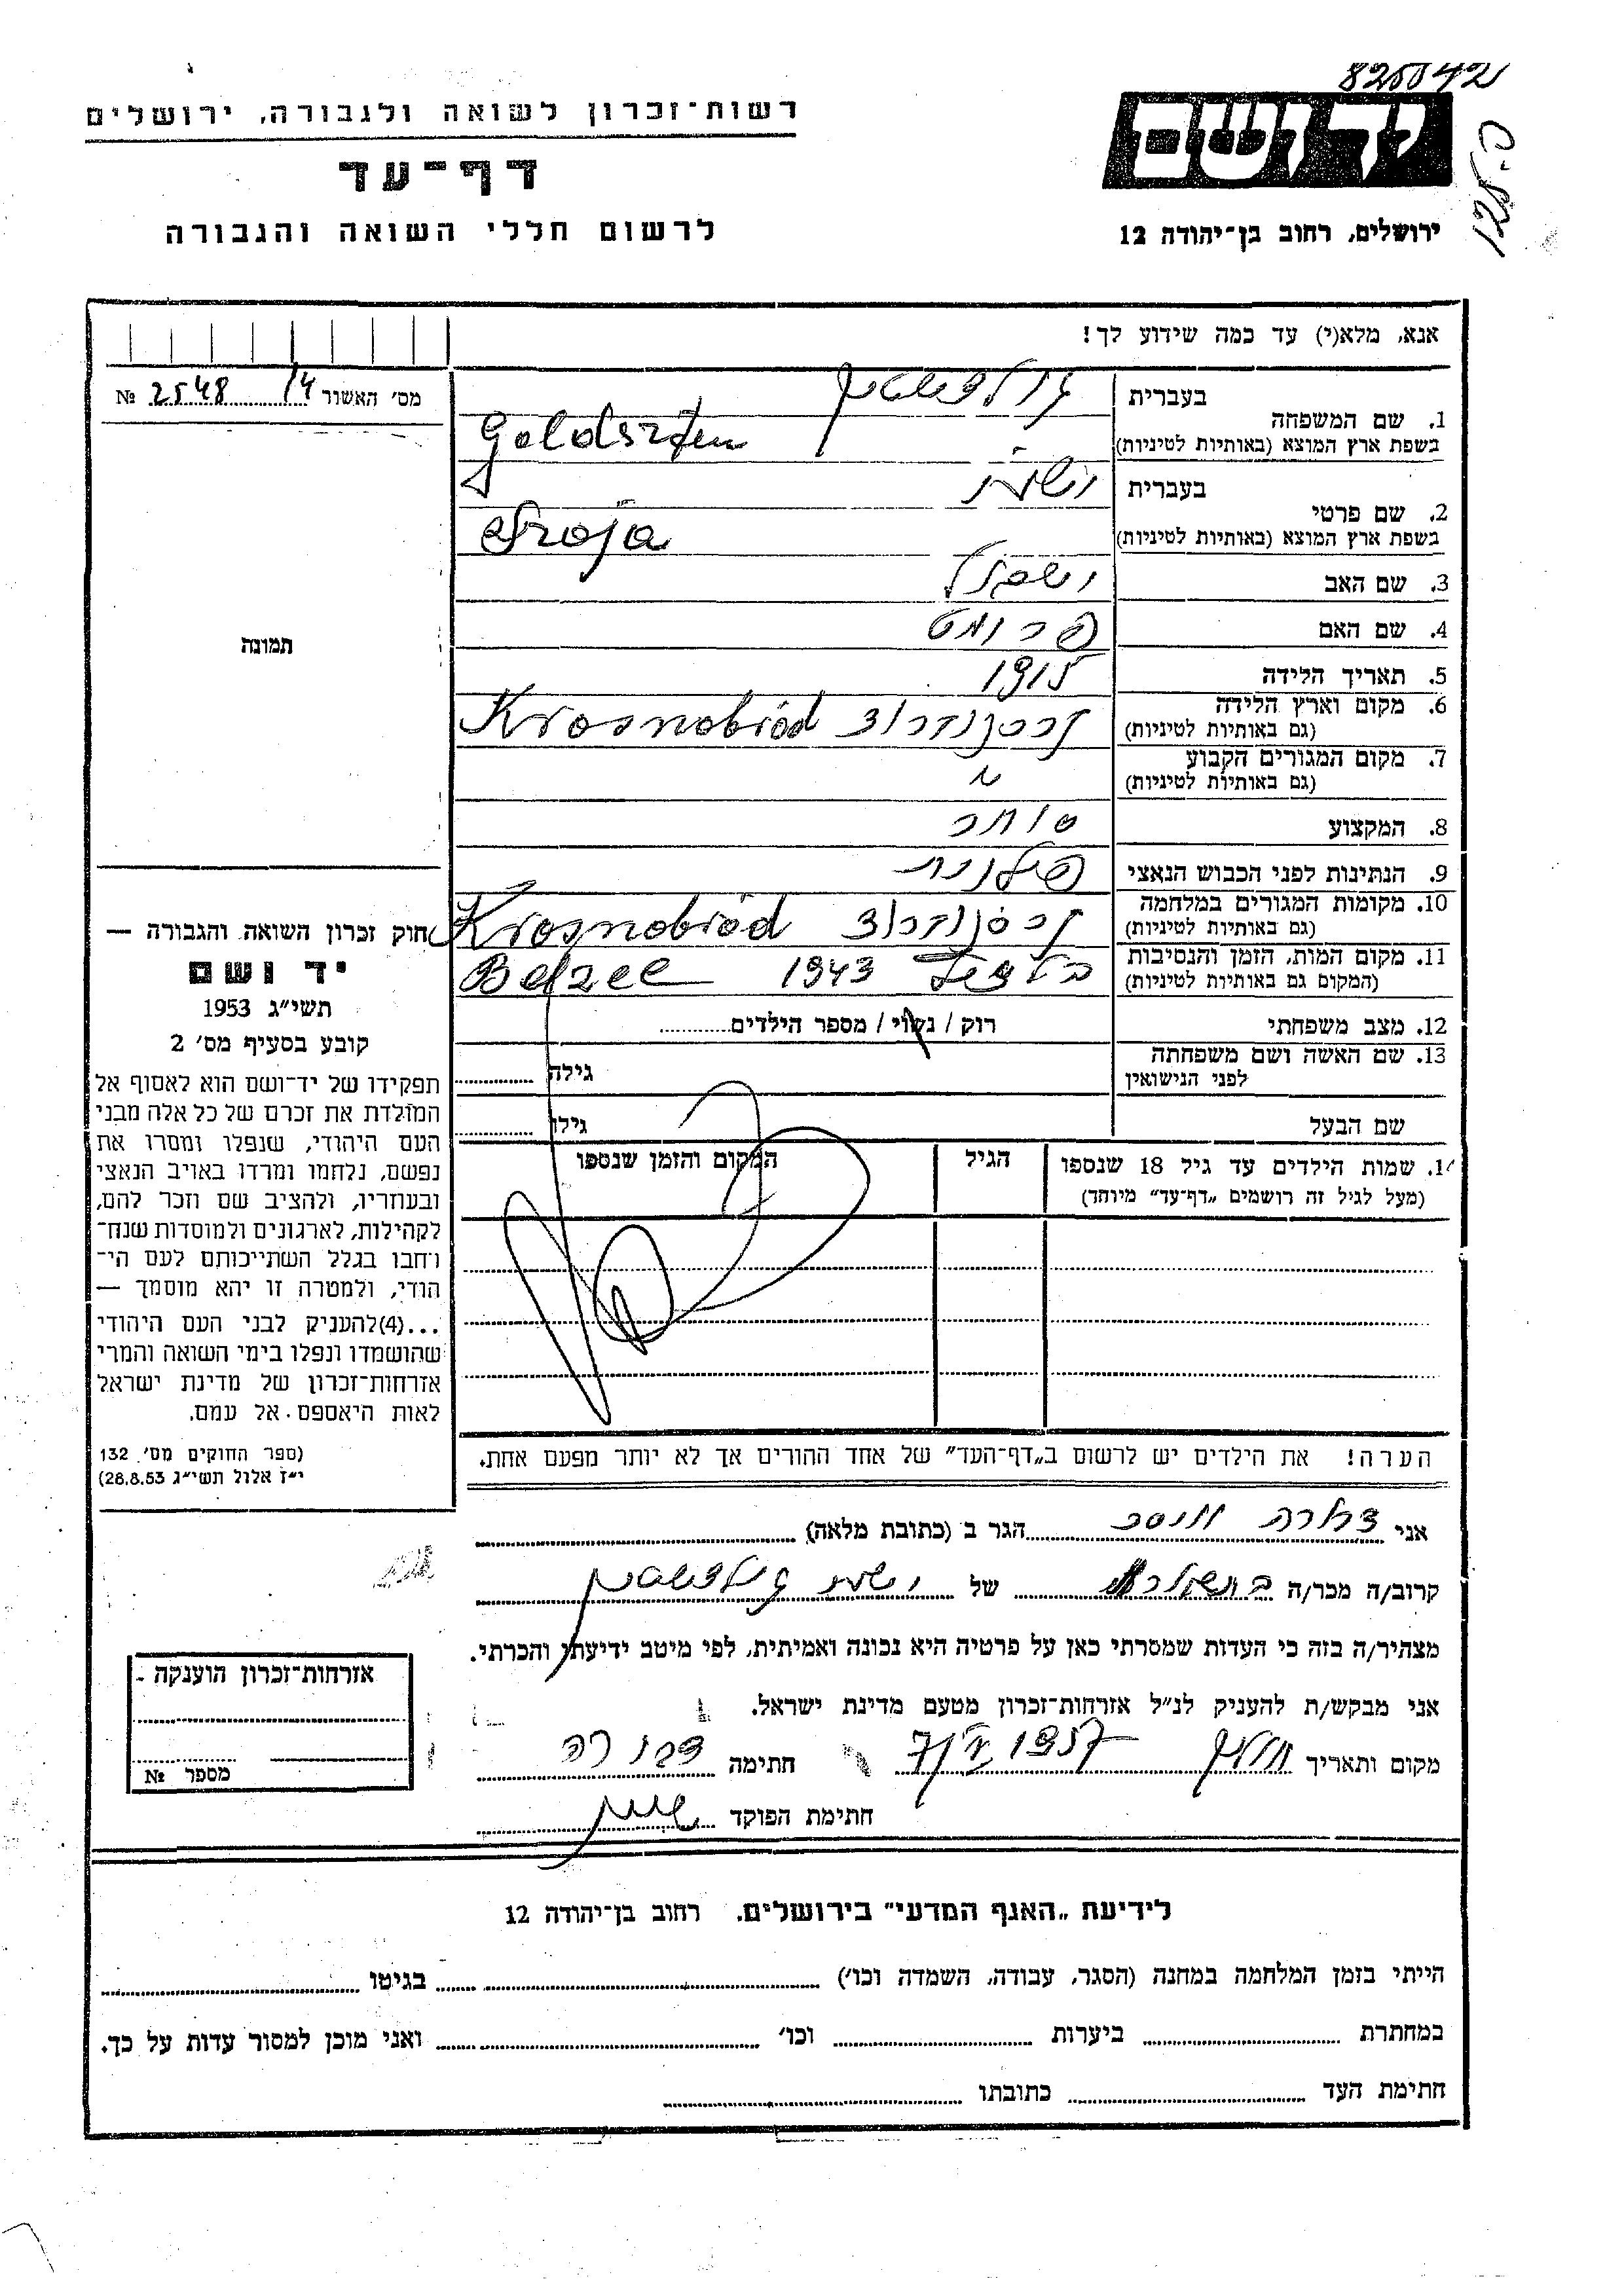 825042
רשות-זכרון לשואה ולגבורה, ירושלים
יד ושם
דף-עד
לרשום חללי השואה והגבורה
ירושלים, רחוב בן-יהודה 12
אנא, מלא(י) עד כמה שידוע לך!
מס׳ האשור 14 2548 №
1. שם המשפחה
בעברית גולדשטין
בשפת ארץ המוצא (באותיות לטיניות) Goldsztein
2. שם פרטי
בעברית ישעיה
בשפת ארץ המוצא (באותיות לטיניות) Szoja
3. שם האב
4. שם האם פרומט
5. תאריך הלידה 1915
6. מקום וארץ הלידה
(גם באותיות לטיניות) Krosnobród
7. מקום המגורים הקבוע
(גם באותיות לטיניות) "
8. המקצוע סוחר
9. הנתינות לפני הכבוש הנאצי פולנית
10. מקומות המגורים במלחמה
(גם באותיות לטיניות) Krosnobród
11. מקום המות, הזמן והנסיבות
(המקום גם באותיות לטיניות) בלזץ 1943 Belzec
12. מצב משפחתי רוק / נשוי / מספר הילדים
13. שם האשה ושם משפחתה
לפני הנישואין גילה
שם הבעל גילו
14. שמות הילדים עד גיל 18 שנספו
(מעל לגיל זה רושמים „דף-עד״ מיוחד)
הגיל
המקום והזמן שנספו
הערה! את הילדים יש לרשום ב„דף-העד״ של אחד ההורים אך לא יותר מפעם אחת.
תמונה
חוק זכרון השואה והגבורה —
יד ושם
תשי״ג 1953
קובע בסעיף מס׳ 2
תפקידו של יד-ושם הוא לאסוף אל
המולדת את זכרם של כל אלה מבני
העם היהודי, שנפלו ומסרו את
נפשם, נלחמו ומרדו באויב הנאצי
ובעוזריו, ולהציב שם וזכר להם,
לקהילות, לארגונים ולמוסדות שנח-
רחבו בגלל השתייכותם לעם הי-
הודי, ולמטרה זו יהא מוסמך —
...(4)להעניק לבני העם היהודי
שהושמדו ונפלו בימי השואה והמרי
אזרחות-זכרון של מדינת ישראל
לאות היאספם אל עמם.
(ספר החוקים מס׳ 132
י״ז אלול תשי״ג 28.8.53)
אני הגר ב (כתובת מלאה)
קרוב/ה מכר/ה של ישעיה גולדשטין
מצהיר/ה בזה כי העדות שמסרתי כאן על פרטיה היא נכונה ואמיתית, לפי מיטב ידיעתי והכרתי.
אני מבקש/ת להעניק לנ״ל אזרחות-זכרון מטעם מדינת ישראל.
מקום ותאריך חולון 1957 חתימה
חתימת הפוקד
אזרחות-זכרון הוענקה
מספר №
לידיעת „האגף המדעי״ בירושלים. רחוב בן-יהודה 12
הייתי בזמן המלחמה במחנה (הסגר, עבודה, השמדה וכו׳) בגיטו
במחתרת ביערות וכו׳ ואני מוכן למסור עדות על כך.
חתימת העד כתובתו